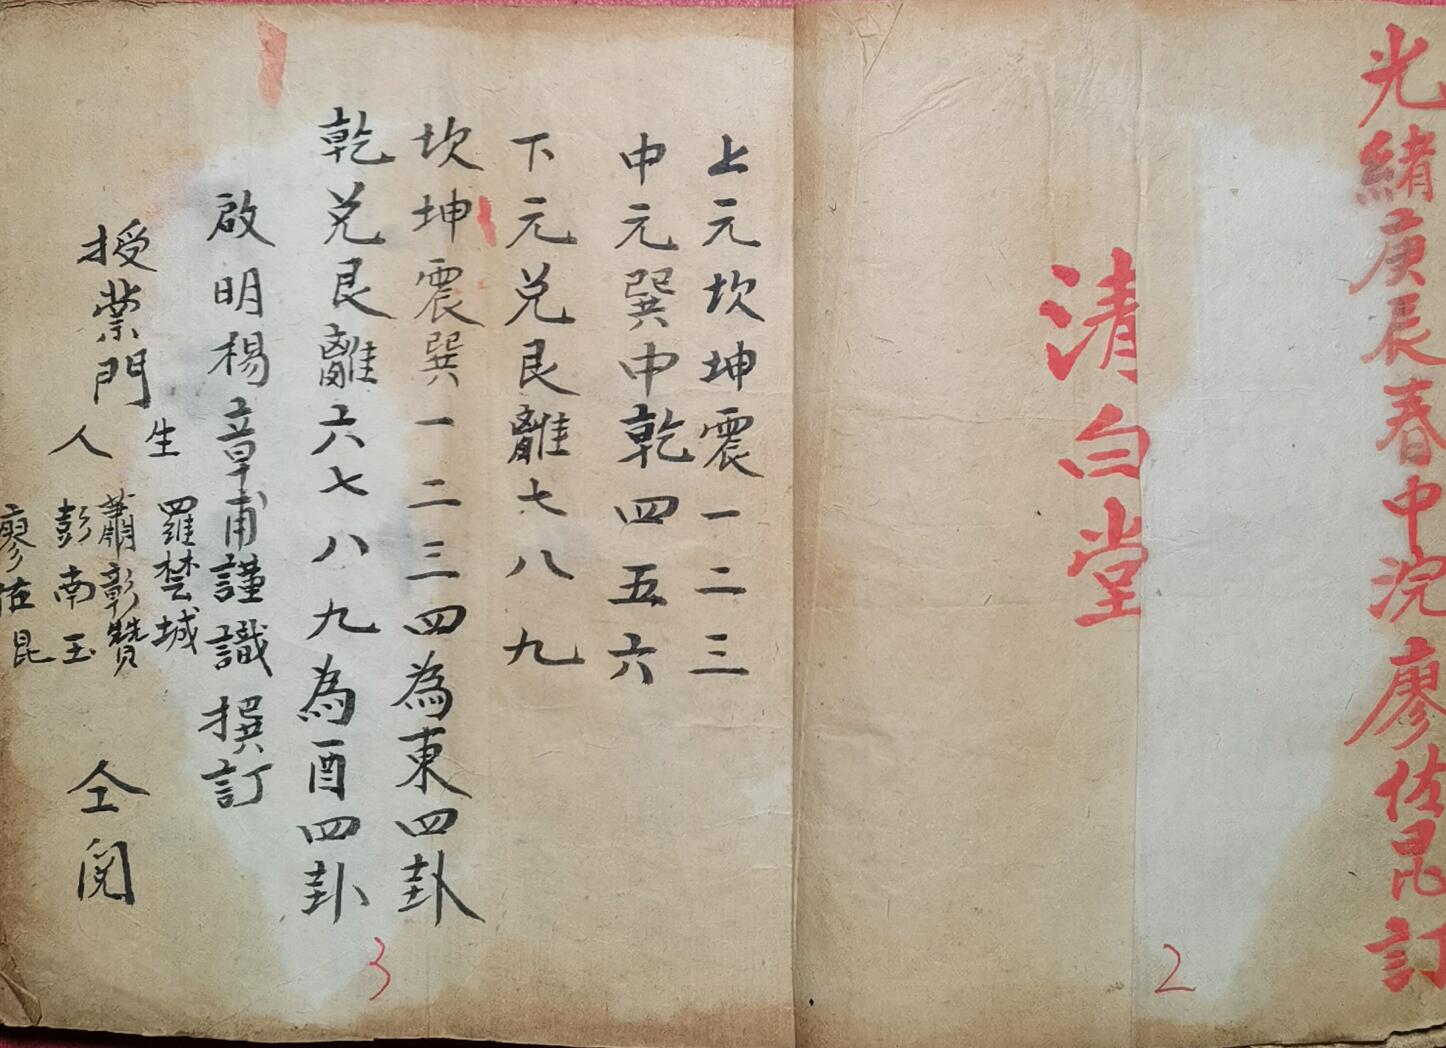 光緒庚辰春中浣廖佑昆訂
清白堂
2
上元坎坤震一二三
中元巽中乾四五六
下元兌艮離七八九
坎坤震巽一二三四為東四卦
乾兌艮離六七八九為酉四卦
啟明楊章甫謹識撰訂
授業門生人
羅楚城
蕭彰贊
彭南玉
廖佑昆
仝閱
3